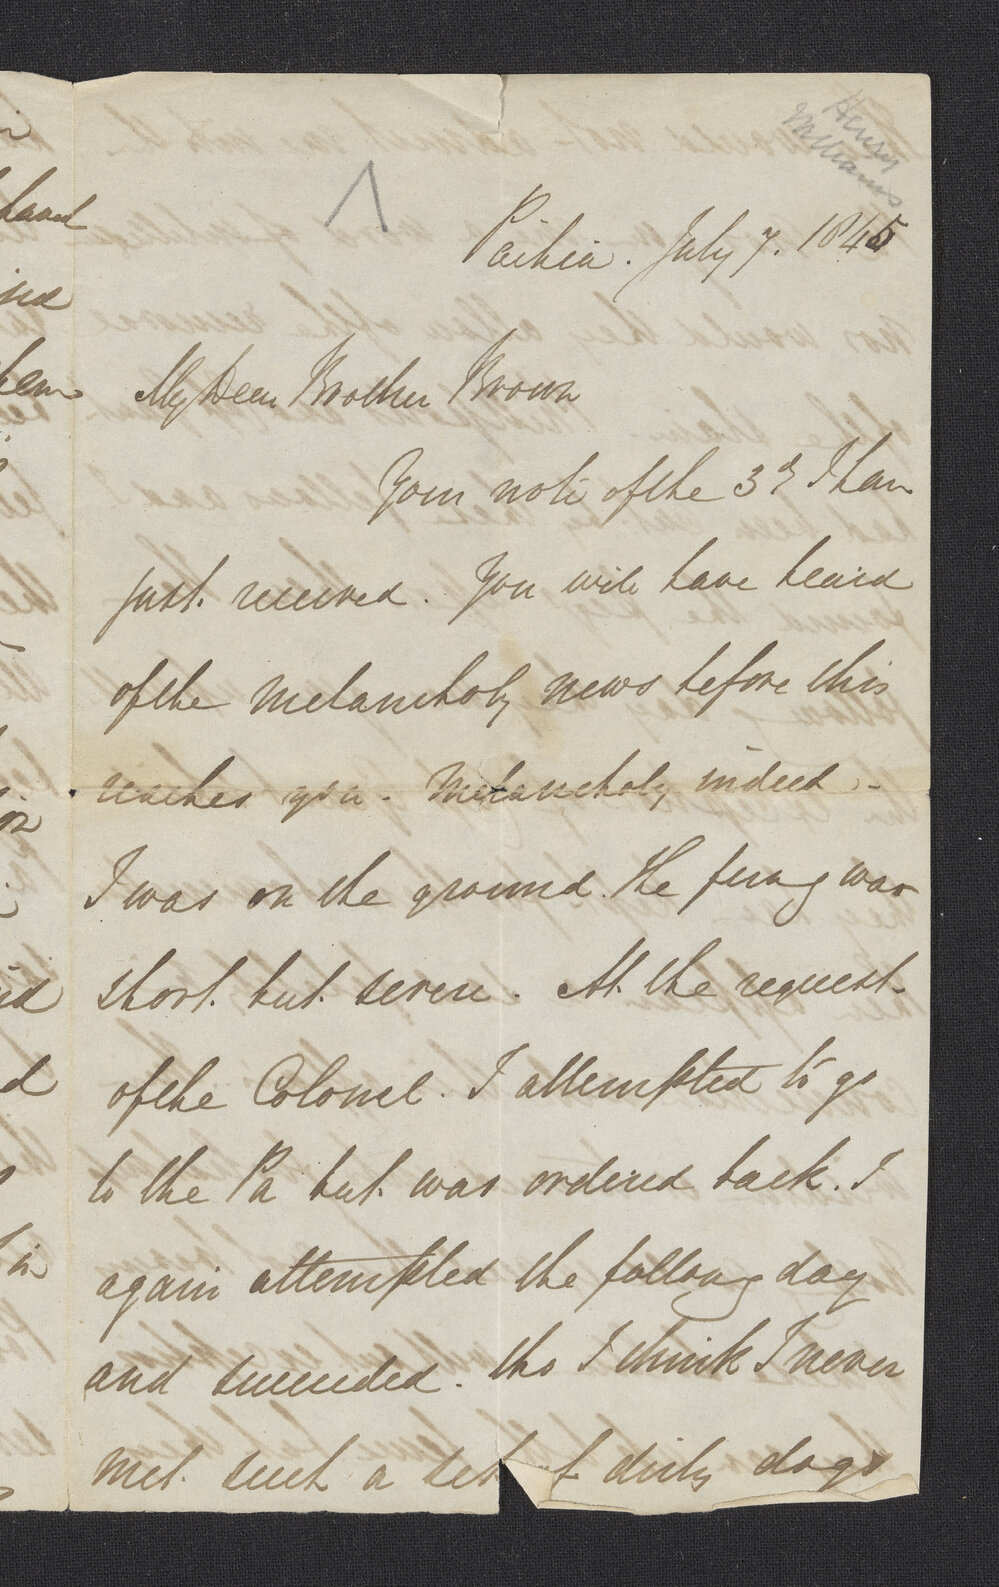 Henry
Williams
Paihia. July 7. 1845
My Dear Brother Brown
Your note of the 3d I have
just received. You will have heard
of the melancholy news before this
reaches you. Melancholy indeed -
I was on the ground. The firing was
short but severe. At the request
of the Colonel. I attempted to go
to the Pa but was ordered back. I
again attempted the following day
and succeeded. tho I think I never
met such a set of dirty dogs